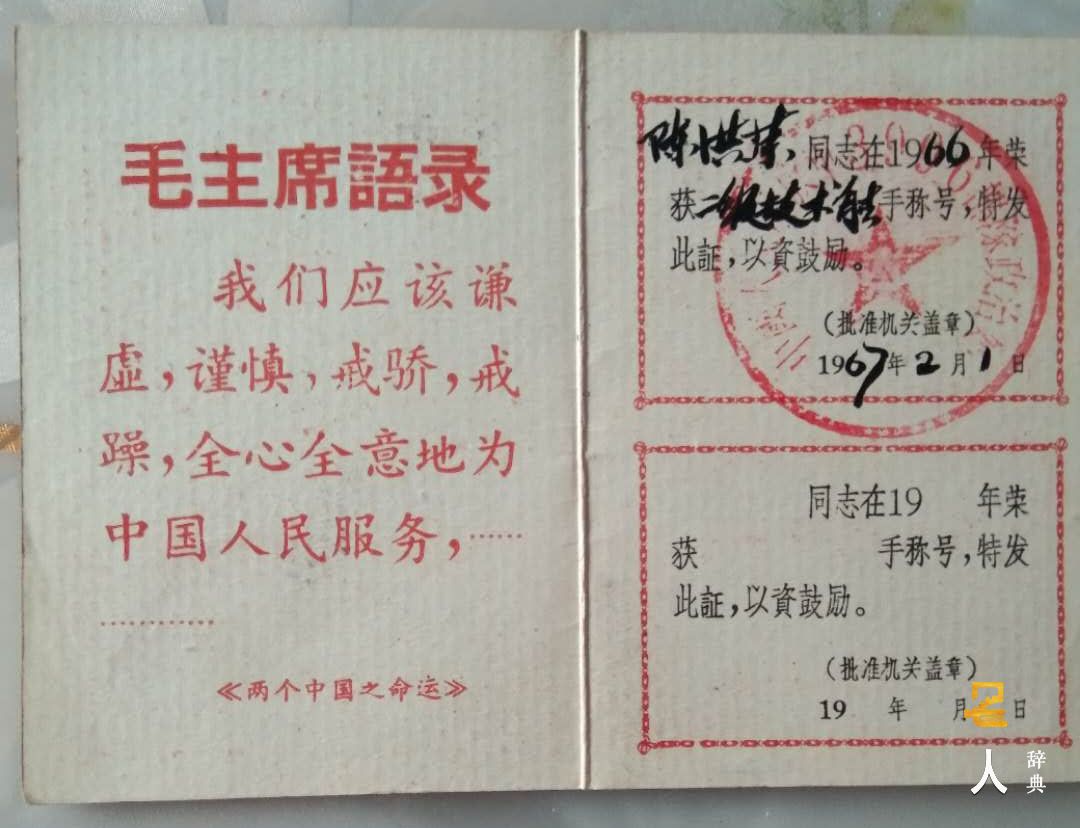 毛主席語录
我们应该谦
虚，谨慎，戒骄，戒
躁，全心全意地为
中国人民服务，……
…………
《两个中国之命运》
陈洪荣同志在1966年荣
获二级技术能手称号，特发
此証，以資鼓励。
（批准机关盖章）
1967年2月1日
同志在19 年荣
获 手称号，特发
此証，以資鼓励。
（批准机关盖章）
19 年 月 日
人 辞典